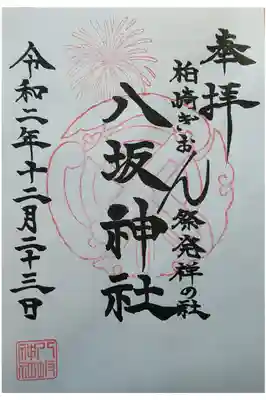 奉拝
柏崎ぎおん祭発祥の社
八坂神社
令和二年十二月二十三日
八坂神社